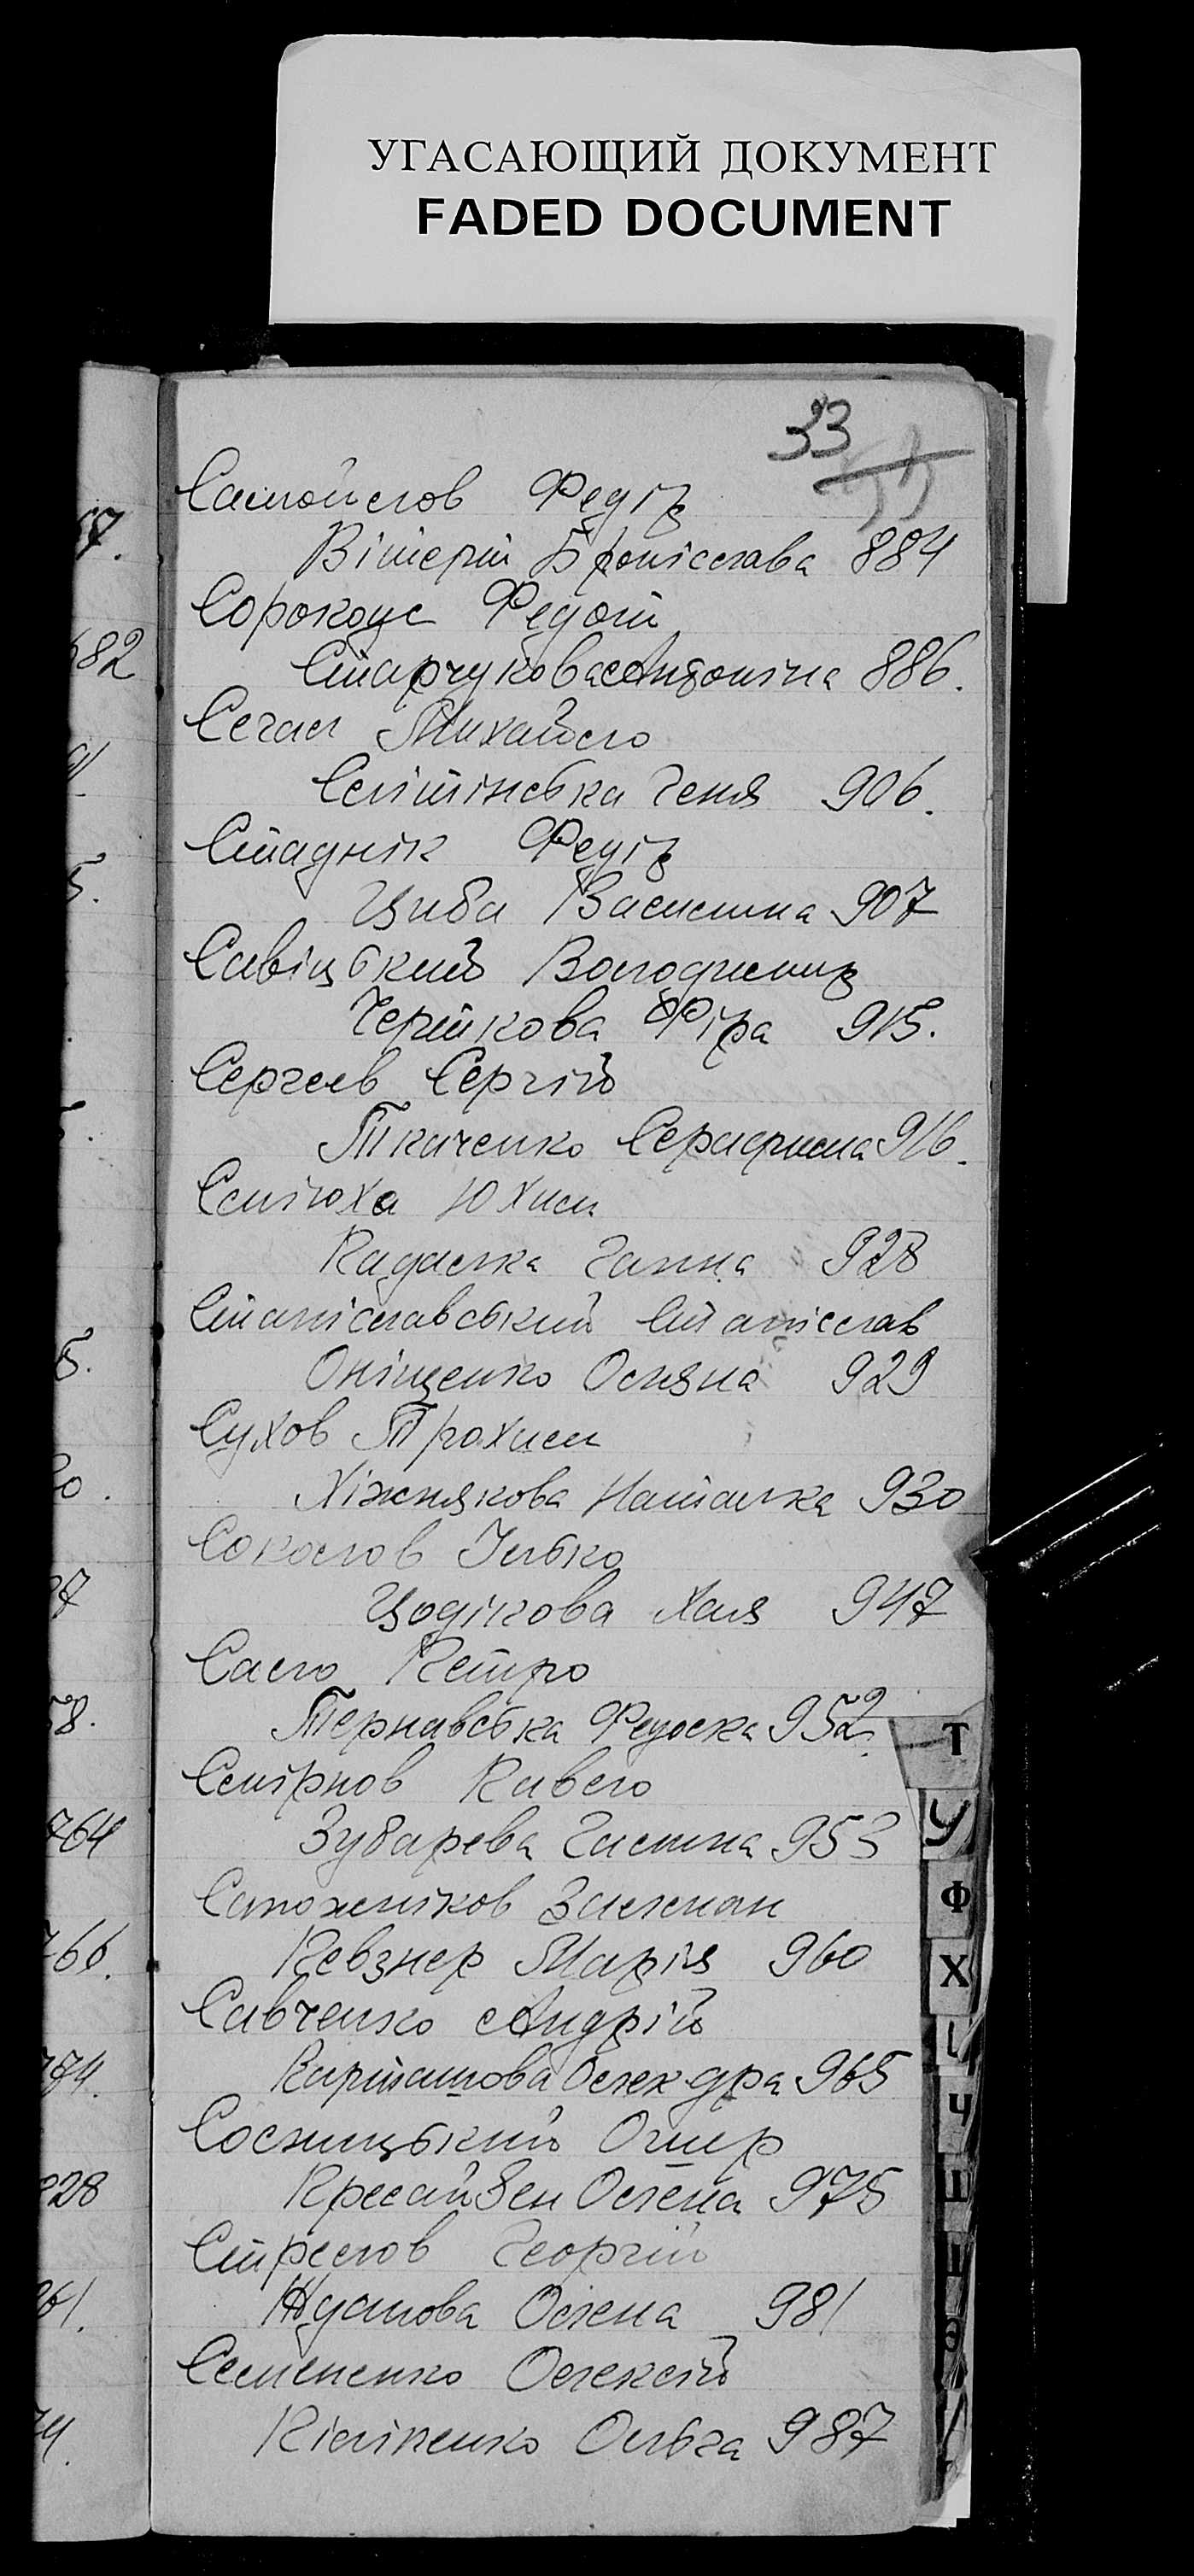 УГАСАЮЩИЙ ДОКУМЕНТ
FADED DOCUMENT
33
Самойлов Федір
Вітерт Броніслава 884
Сорокоус Федот
Старчукова Антоніна 886.
Сегал Михайло
Селітінська Геня 906.
Стаднік Федір
Циба Василина 907
Савіцький Володимир
Черткова Фіра 915.
Сергеев Сергій
Ткаченко Серафима 916.
Смілюха Юхим
Кадалка Ганна 928
Станіславський Станіслав
Оніщенко Оляна 929
Сухов Трохим
Хіжнякова Наталка 930
Соколов Ілько
Цодікова Хая 947
Сало Петро
Тернавська Федоска 952.
Смірнов Павло
Зубарева Галина 953
Сапожніков Залман
Певзнер Марія 960
Савченко Андрій
Карташова Олекдра 965
Сосницький Ошер
Олена 975
Стрелов Георгій
Жданова Олена 981
Семененко Олексій
Кіліпенко Ольга 987
57.
682
5.
5.
30.
37
58.
764
766.
774.
828
861.
74.
Т
У
Ф
Х
Ч
Ш